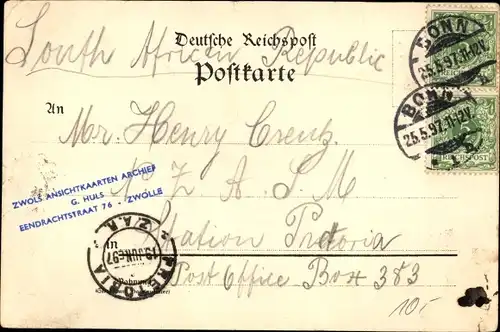 Deutsche Reichspost
South African Republic
Postkarte
An
Mr. Henry Creutz
N Z A S M
Station Pretoria
Post Office Box 383
10-
ZWOLS ANSICHTKAARTEN ARCHIEF
G. HULS
EENDRACHTSTRAAT 76 - ZWOLLE
BONN
25.5.97.11-12V.
BONN
25.5.97.11-12V.
REICHSPOST
Z.A.R.
19 JUNE 97
PRETORIA
in